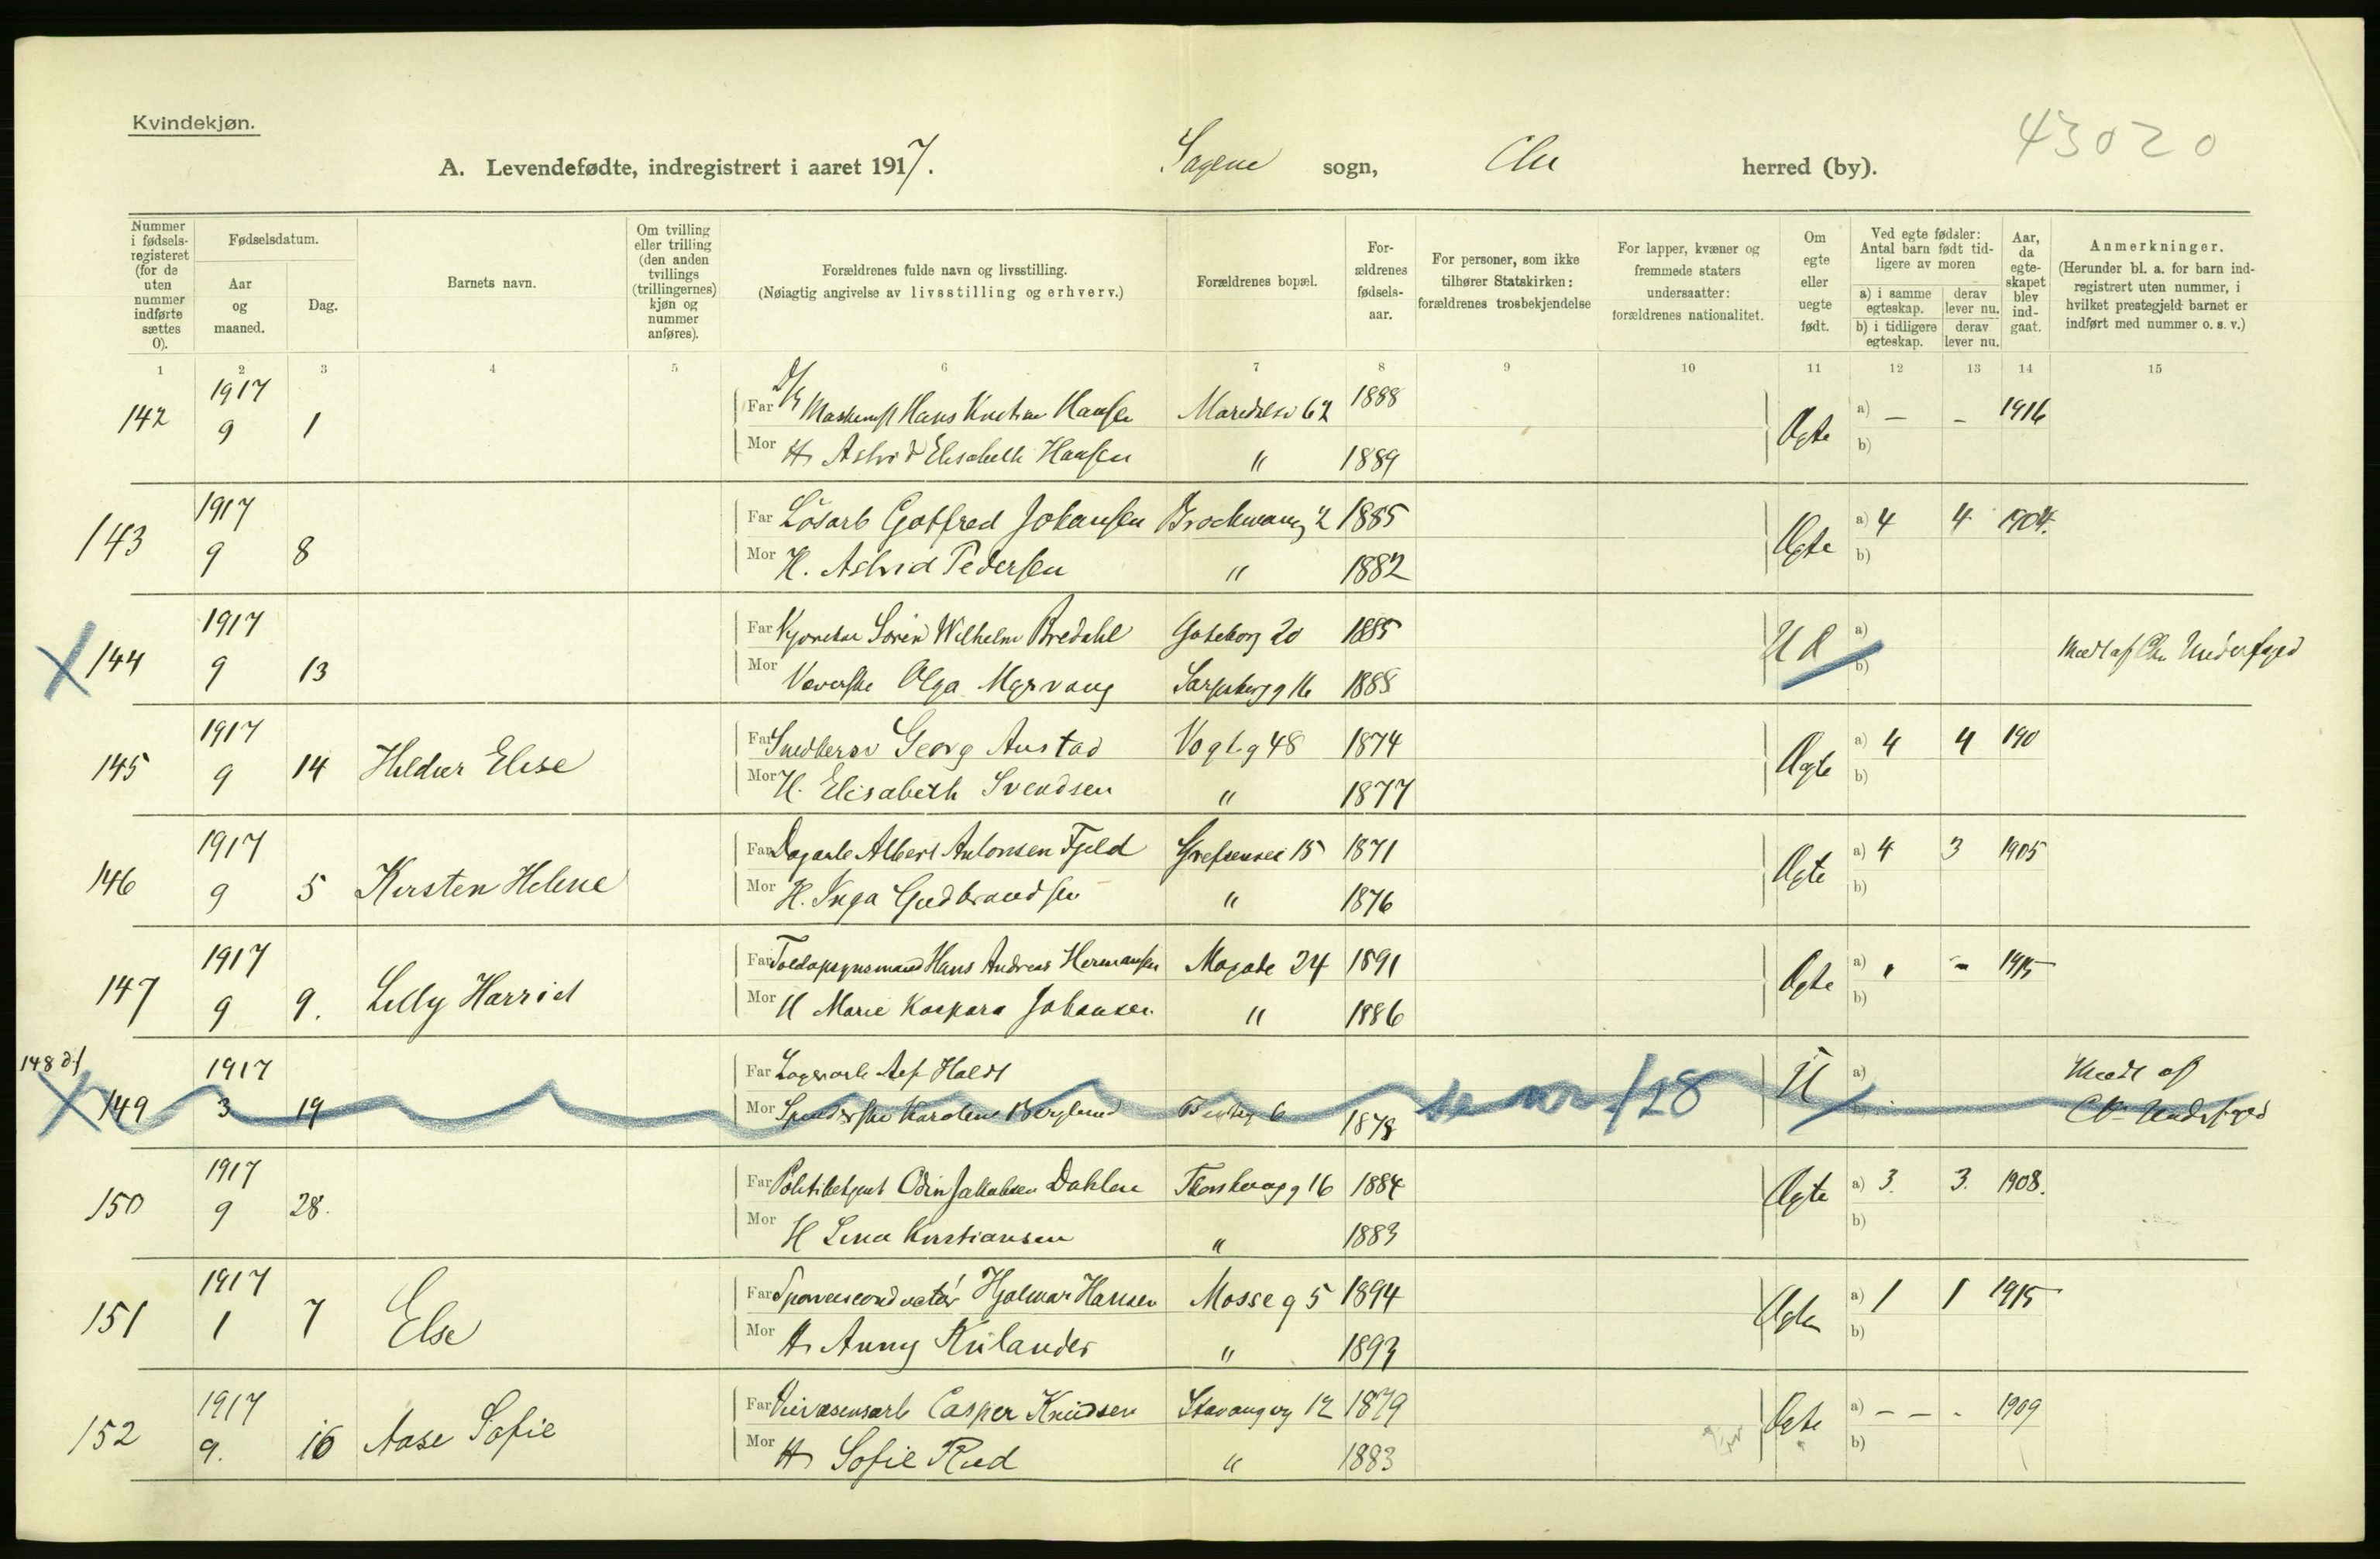 Kvindekjøn.
43020
A. Levendefødte, indregistrert i aaret 1917. Sagene sogn, Chr herred (by).
Nummer i fødselsregisteret (for de uten nummer indførte sættes 0).
Fødselsdatum.
Aar og maaned.
Dag.
Barnets navn.
Om tvilling eller trilling (den anden tvillings (trillingernes) kjøn og nummer anføres).
Forældrenes fulde navn og livsstilling.
(Nøiagtig angivelse av livsstilling og erhverv.)
Forældrenes bopæl.
For-ældrenes fødsels-aar.
For personer, som ikke tilhører Statskirken: forældrenes trosbekjendelse
For lapper, kvæner og fremmede staters undersaatter: forældrenes nationalitet.
Om egte eller uegte født.
Ved egte fødsler: Antal barn født tidligere av moren
a) i samme egteskap.
derav lever nu.
b) i tidligere egteskap.
derav lever nu.
Aar, da egteskapet blev indgaat.
Anmerkninger.
(Herunder bl. a. for barn indregistrert uten nummer, i hvilket prestegjeld barnet er indført med nummer o. s. v.)
1 2 3 4 5 6 7 8 9 10 11 12 13 14 15
142 1917 9 1 Far Hans Hansen 62 1888 Egte a) – – 1916
Mor H Astrid Elisabeth Hansen " 1889 b)
143 1917 9 8 Far Løsarb Gotfred Johansen 2 1885 Egte a) 4 4 1904.
Mor H. Astrid Pedersen " 1882 b)
X 144 1917 9 13 Far Søren Wilhelm Bredahl Goteborg 20 1885 a)
Mor Væverske Olga Sarpsborgg 16 1888 b)
145 1917 9 14 Elise Far Georg Austad Vogtg 48 1874 Egte a) 4 4 190
Mor H. Elisabeth Svendsen " 1877 b)
146 1917 9 5 Kirsten Helene Far Dagarb Albert Antonsen Fjeld Grefsenvei 15 1871 Egte a) 4 3 1905
Mor H. Inga Gudbrandsen " 1876 b)
147 1917 9 9. Lilly Harriet Far Toldopsynsmand Hans Andreas Hermansen 24 1891 Egte a) " – 1915
Mor H Marie Kaspara Johansen " 1886 b)
148
X 149 1917 3 19 Far Lagerarb Holdt U a) Medt af
Mor Karoline Berglund 6 1878 se nr 128
150 1917 9 28. Far Politibetjent Odin Jakobsen Dahlen 16 1884 Egte a) 3. 3. 1908.
Mor H Lina Kristiansen " 1883 b)
151 1917 1 7 Else Far Hjalmar Hansen Mosseg 5 1894 Egte a) 1 1 1915
Mor H. Anny " 1893 b)
152 1917 9. 16 Aase Sofie Far Casper Knudsen 12 1879 Egte a) – – - 1909
Mor H Sofie Rud " 1883 b)